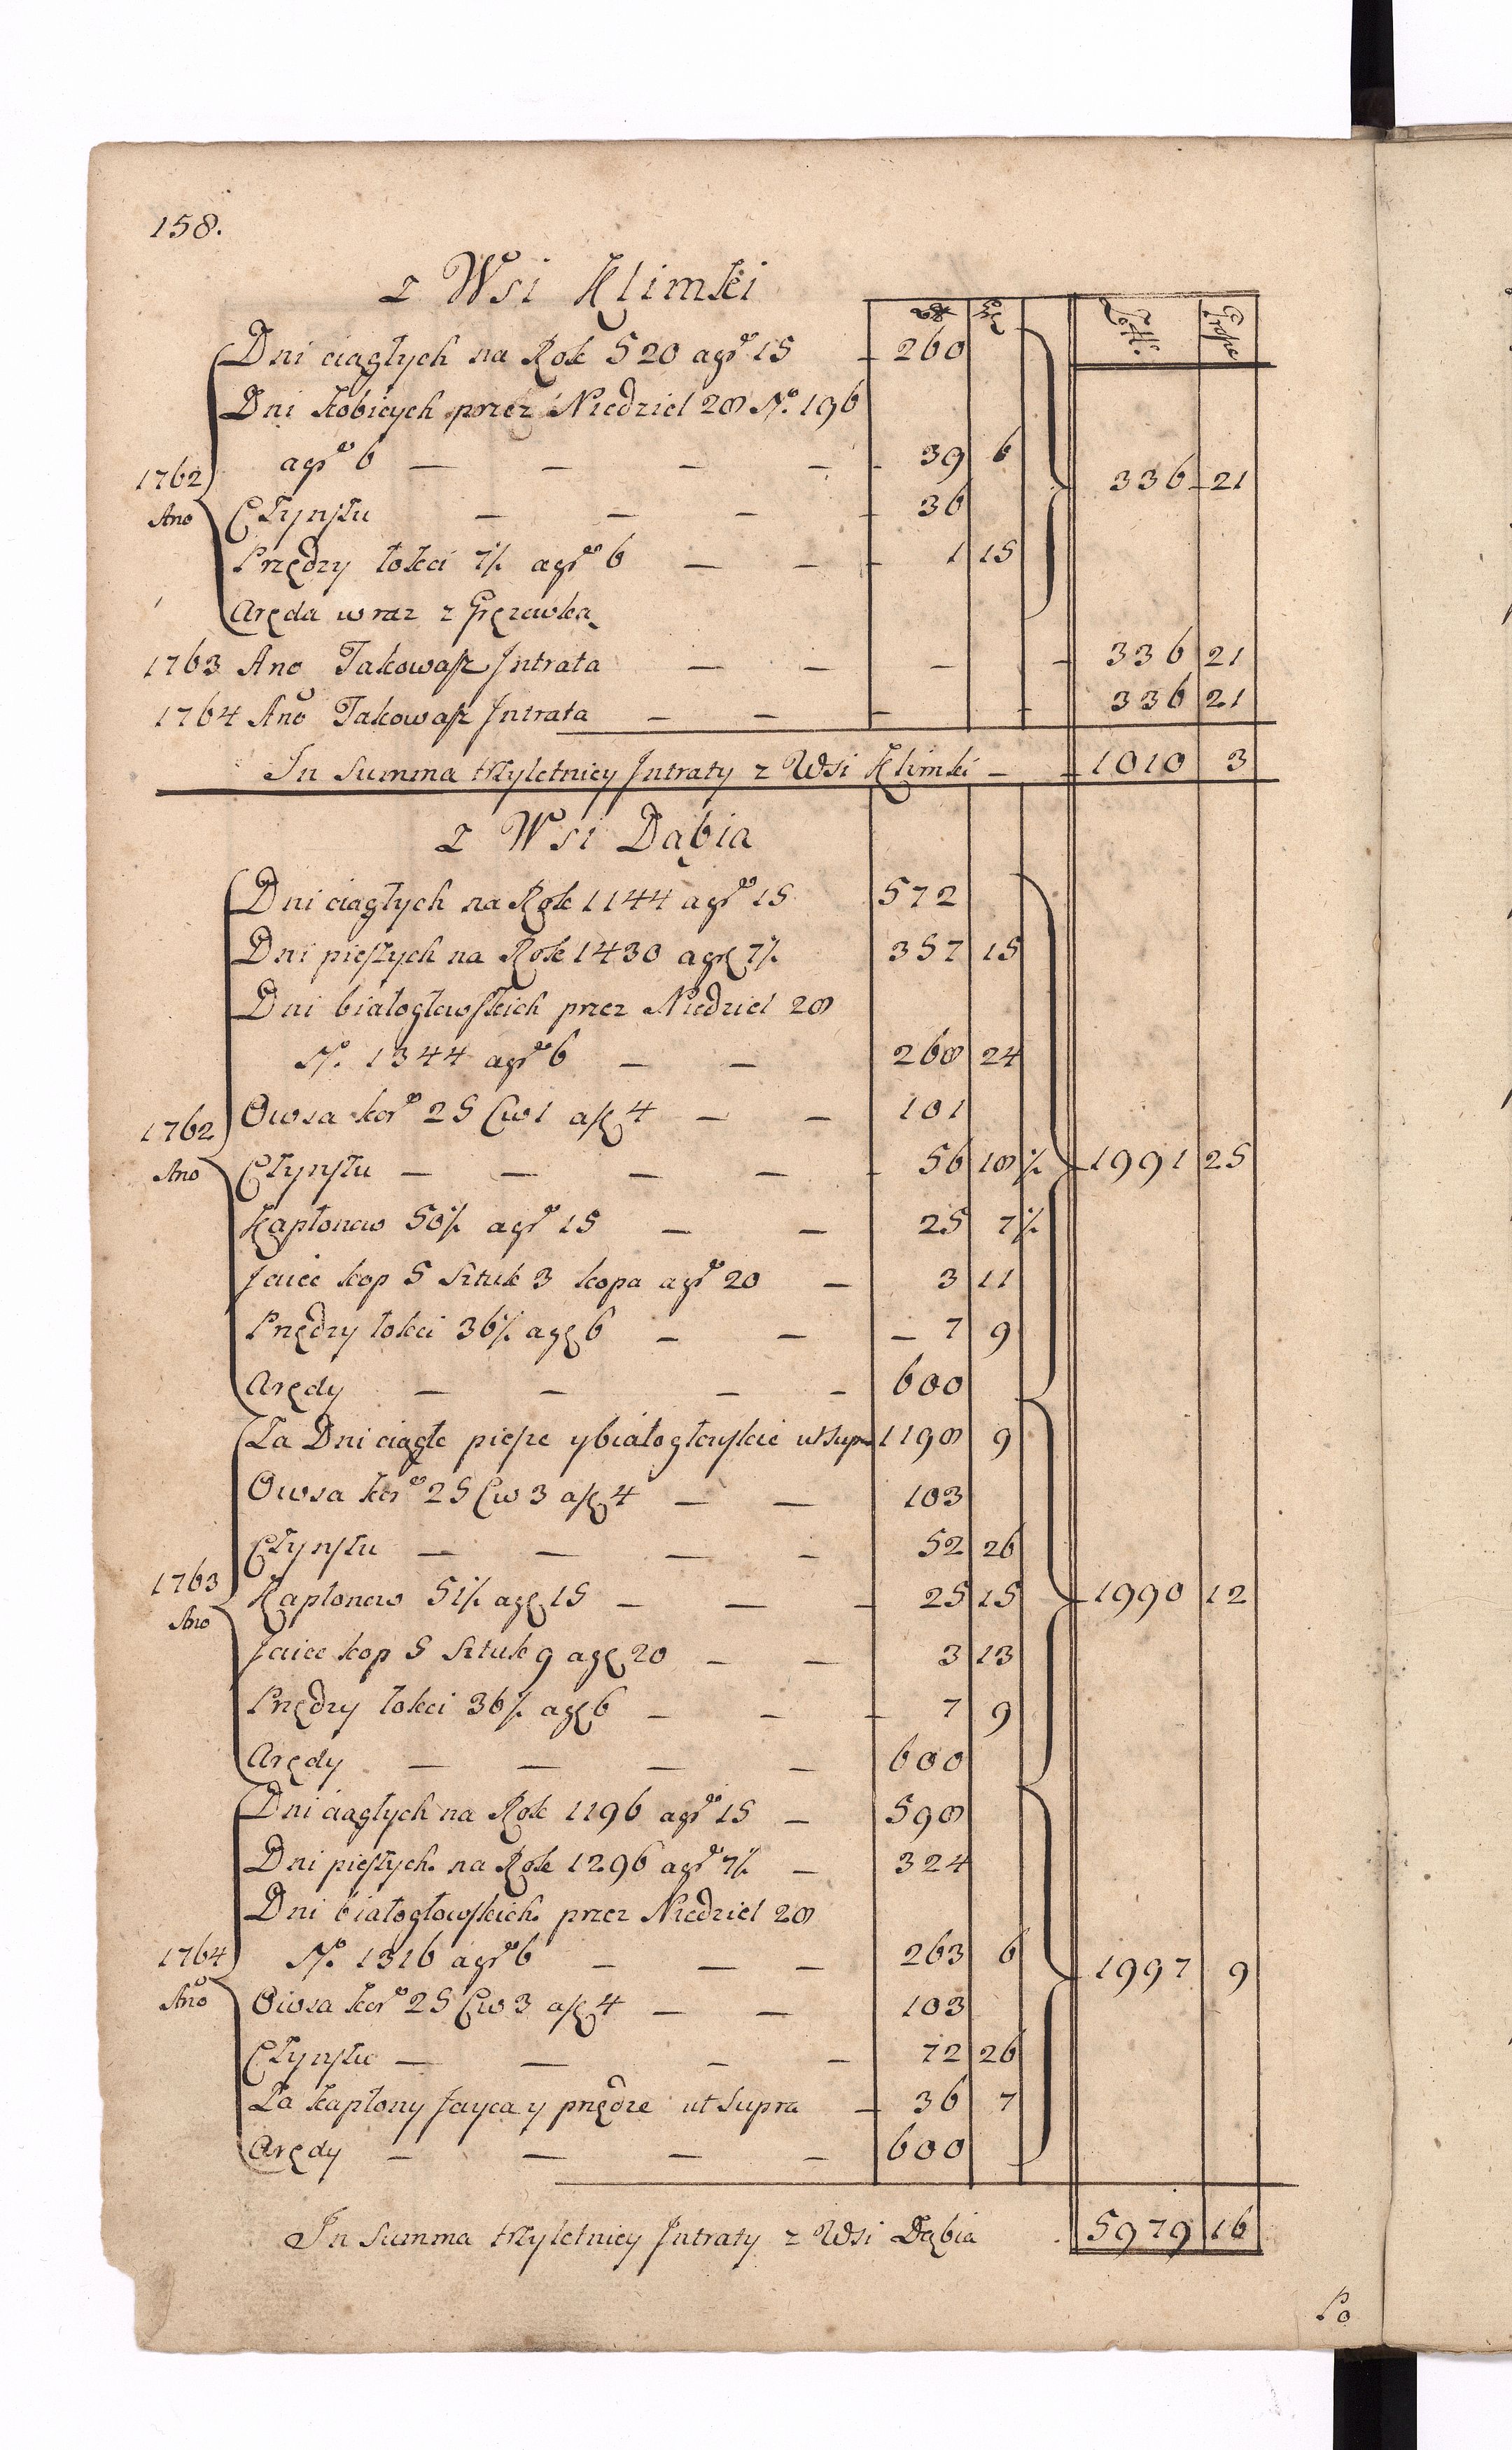 158.
z Wsi Klimki
zł gr Zott: Grosze
Dni ciągłych na Rok 520 a gr 15 – 260
Dni kobiecych przez Niedziel 28 No. 196
1762 a gr 6 – – – – 39 6 336 21
Ano Czynszu – – – – 36
Przędzy łokci 7½ a gr 6 – – – 1 15
Aręda wraz z Gręzewką
1763 Ano Takowasz Intrata – – – – 336 21
1764 Ano Takowasz Intrata – – – – 336 21
In Summa trzyletniey Intraty z Wsi Klimki – 1010 3
z Wsi Dąbia
Dni ciągłych na Rok 1144 a gr 15 572
Dni pieszych na Rok 1430 a gr 7½ 357 15
Dni białogłowskich przez Niedziel 28
No. 1344 a gr 6 – – 268 24
1762 Owsa kor 25 Cw 1 a zł 4 – – 101
Ano Czynszu – – – – 56 18½ 1991 25
Kapłonow 50½ a gr 15 – – 25 7½
Jaiec kop 5 Sztuk 3 kopa a gr 20 – 3 11
Przędzy łokci 36½ a gr 6 – – – 7 9
Arędy – – – – 600
Za Dni ciągłe piesze y białogłowskie ut supra 1198 9
Owsa kor 25 Cw 3 a zł 4 – – 103
Czynszu – – – – 52 26
1763 Kapłonow 51½ a gr 15 – – – 25 15 1990 12
Ano
Jaiec kop 5 Sztuk 9 a gr 20 – – 3 13
Przędzy łokci 36½ a gr 6 – – – 7 9
Arędy – – – – 600
Dni ciągłych na Rok 1196 a gr 15 – 598
Dni pieszych na Rok 1296 a gr 7½ – 324
Dni białogłowskich przez Niedziel 28
1764 No. 1316 a gr 6 – – – 263 6 1997 9
Ano Owsa kor 25 Cw 3 a zł 4 – – 103
Czynszu – – – – 72 26
Za kapłony Jayca y przędze ut Supra – 36 7
Arędy – – – – 600
In Summa trzyletniey Intraty z Wsi Dąbia 5979 16
Po